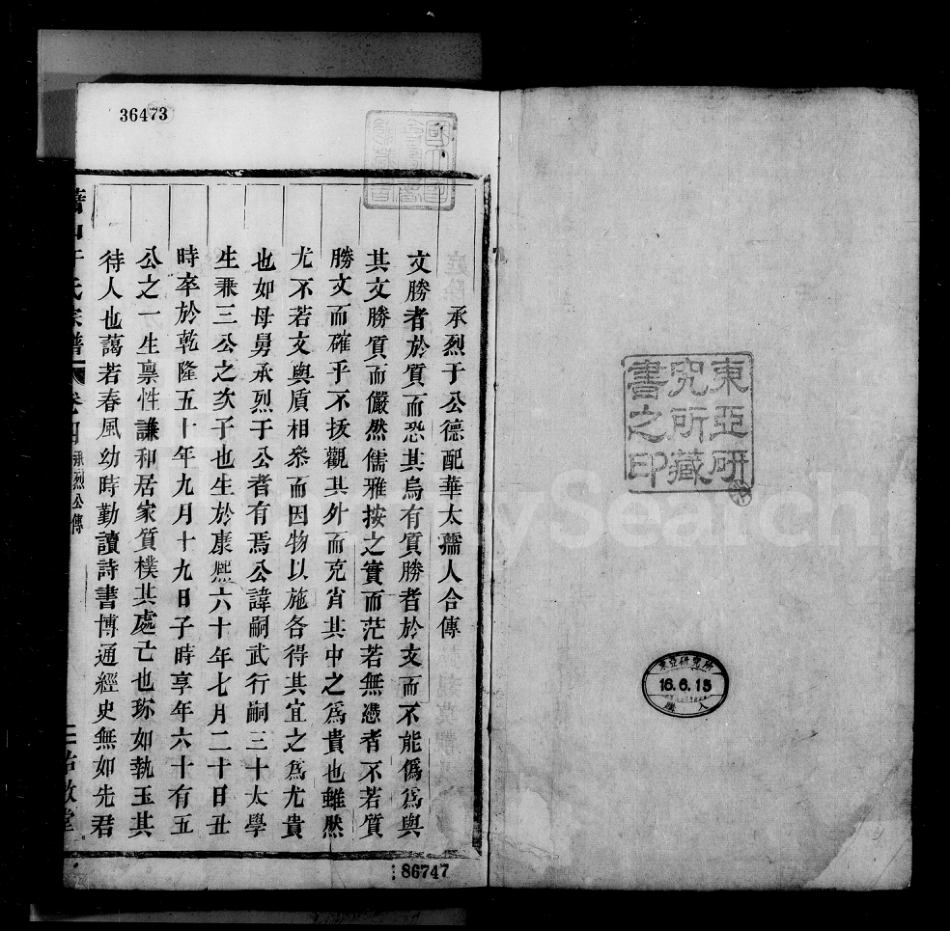 東亞研
究所藏
書之印
東亞研究所
16.6.13
購入
36473
承烈于公德配華太孺人合傳
文勝者於質而恐其烏有質勝者於文而不能僞爲與
其文勝質而儼然儒雅按之實而茫若無憑者不若質
勝文而確乎不拔觀其外而克肖其中之爲貴也雖然
尤不若文與質相叅而因物以施各得其宜之爲尤貴
也如母舅承烈于公者有焉公諱嗣武行嗣三十太學
生秉三公之次子也生於康熙六十年七月二十日丑
時卒於乾隆五十年九月十九日子時享年六十有五
公之一生稟性謙和居家質樸其處亡也珎如執玉其
待人也藹若春風幼時勤讀詩書博通經史無如先君
于氏宗譜
卷四
承烈公傳
86747
FamilySearch